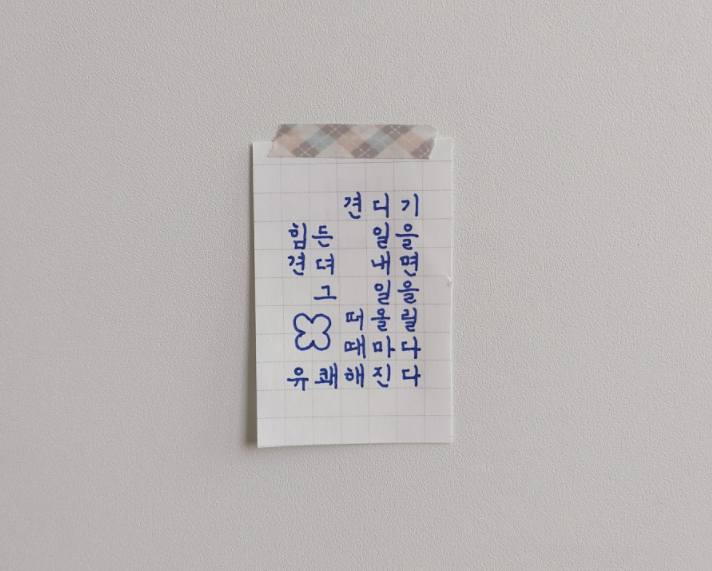 견디기
힘든 일을
견뎌 내면
그 일을
떠올릴
때마다
유쾌해진다